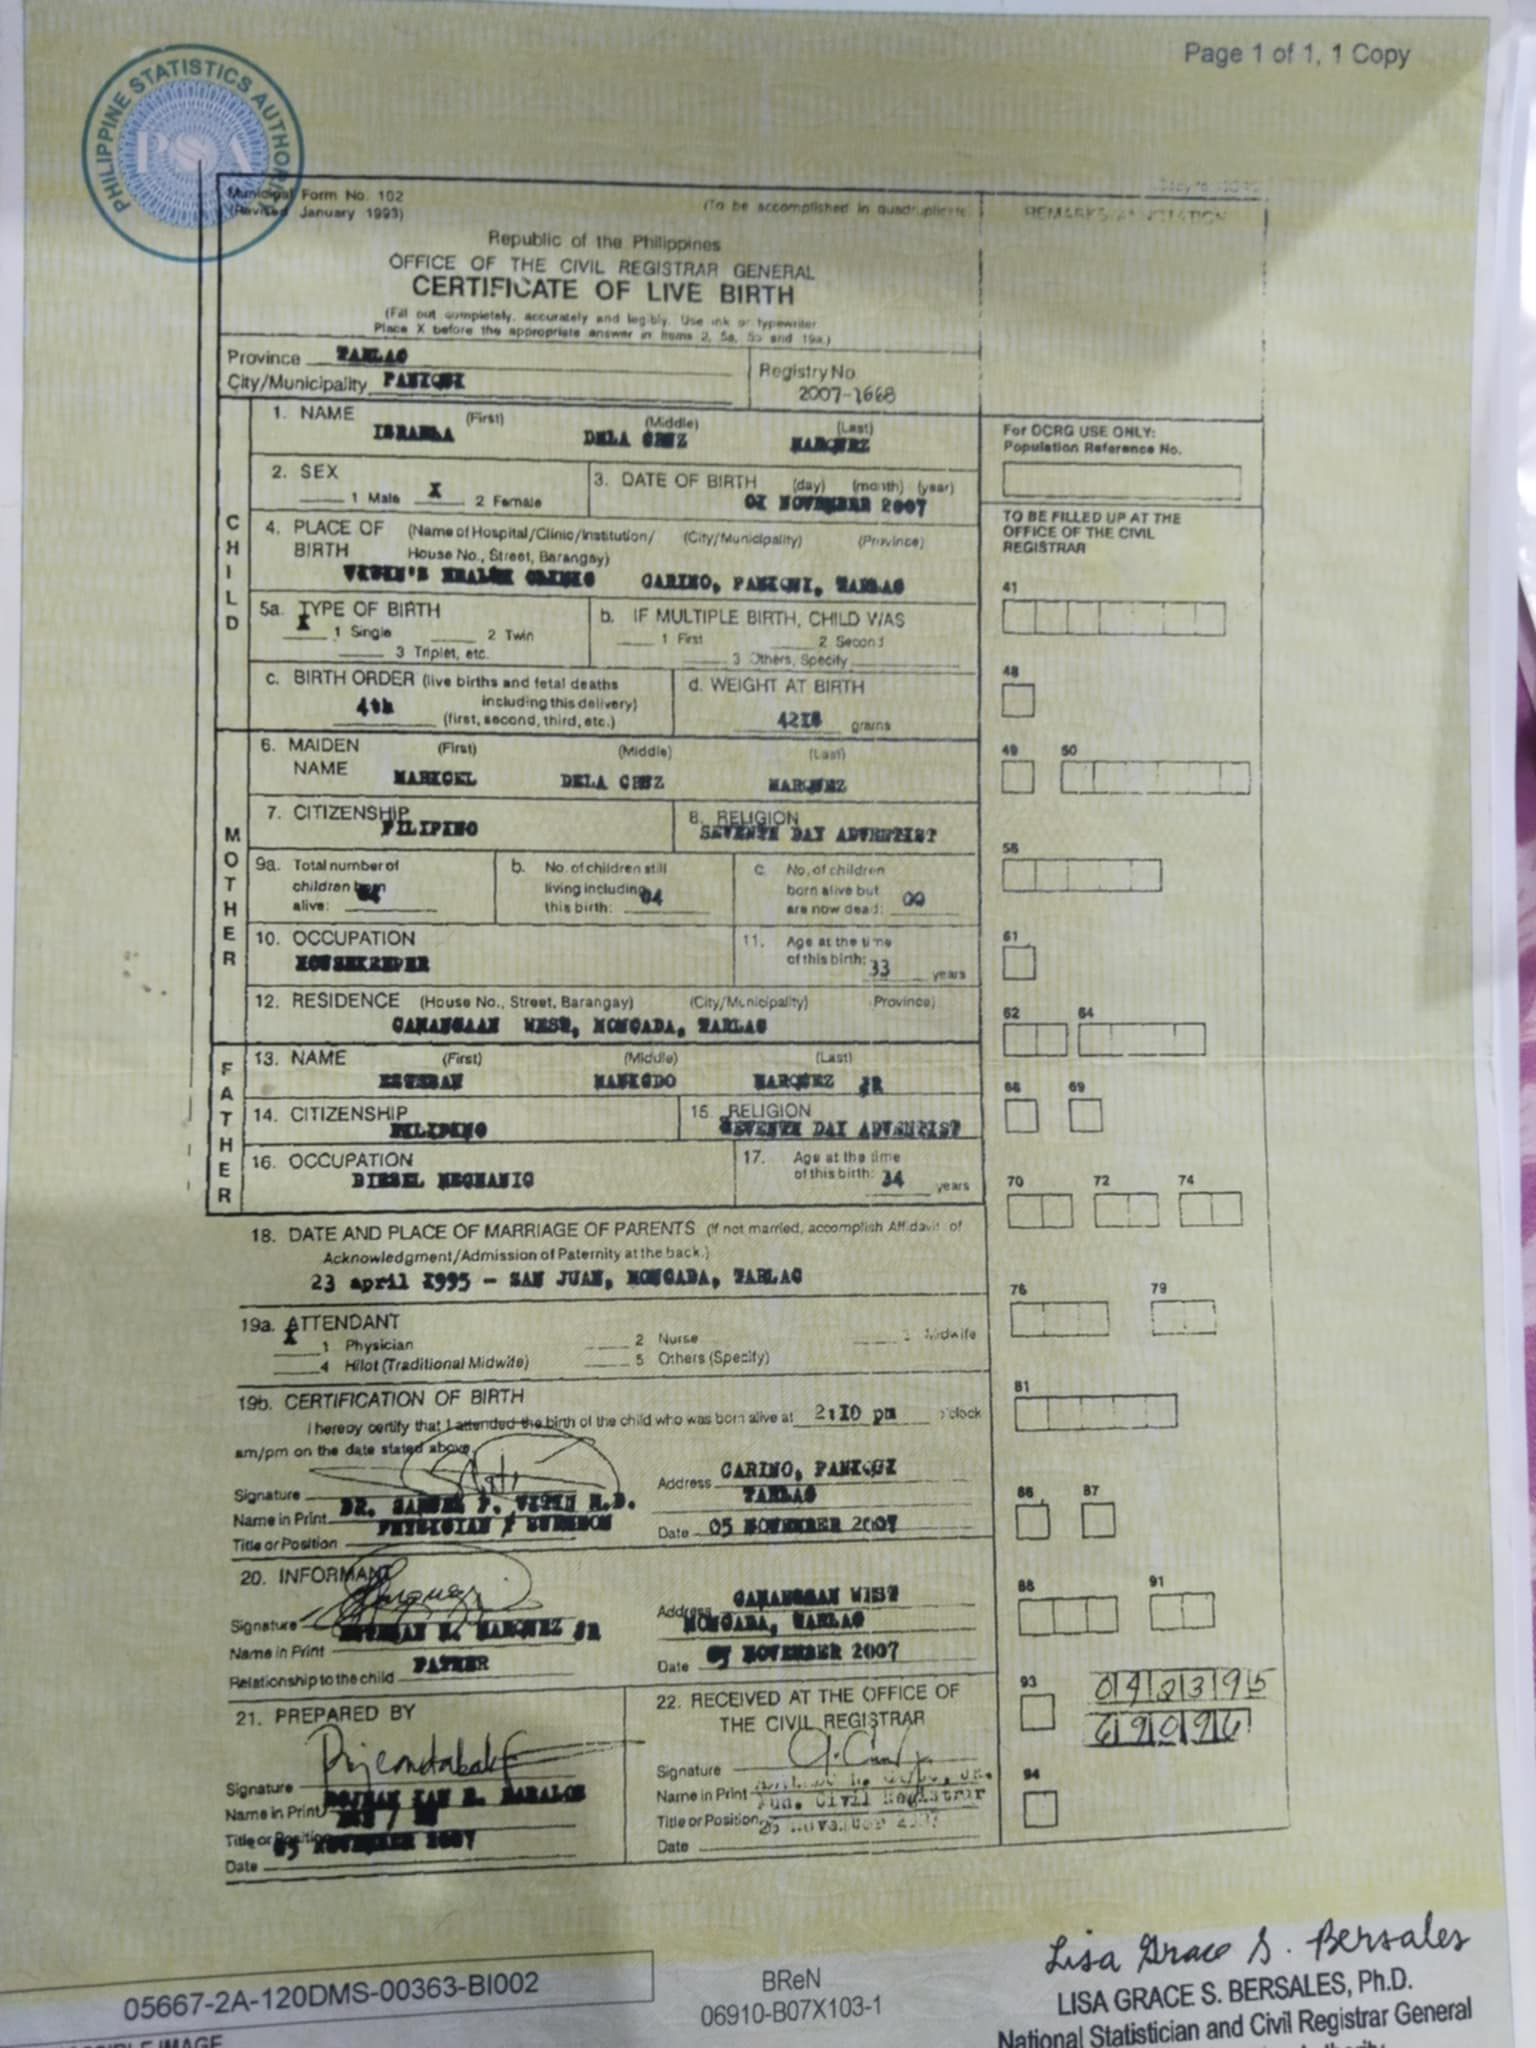 Page 1 of 1, 1 Copy
PHILIPPINE STATISTICS AUTHORITY
PSA
Municipal Form No. 102
(Revised January 1993)
(To be accomplished in quadruplicate)
REMARKS/ANNOTATION
Republic of the Philippines
OFFICE OF THE CIVIL REGISTRAR GENERAL
CERTIFICATE OF LIVE BIRTH
(Fill out completely, accurately and legibly. Use ink or typewriter.
Place X before the appropriate answer in Items 2, 5a, 5b and 19a.)
Province TARLAC
City/Municipality PANIQUI
Registry No.
2007-1668
CHILD
1. NAME (First) (Middle) (Last)
ISRAELA DELA CRUZ MARQUEZ
For OCRG USE ONLY:
Population Reference No.
2. SEX
1 Male X 2 Female
3. DATE OF BIRTH (day) (month) (year)
NOVEMBER 2007
TO BE FILLED UP AT THE
OFFICE OF THE CIVIL
REGISTRAR
4. PLACE OF BIRTH (Name of Hospital/Clinic/Institution/ (City/Municipality) (Province)
House No., Street, Barangay)
HEALTH CLINIC CARINO, PANIQUI, TARLAC
41
5a. TYPE OF BIRTH
X 1 Single 2 Twin
3 Triplet, etc.
b. IF MULTIPLE BIRTH, CHILD WAS
1 First 2 Second
3 Others, Specify
c. BIRTH ORDER (live births and fetal deaths
including this delivery)
4th (first, second, third, etc.)
d. WEIGHT AT BIRTH
grams
48
MOTHER
6. MAIDEN NAME (First) (Middle) (Last)
MARICEL DELA CRUZ MARQUEZ
49 50
7. CITIZENSHIP
FILIPINO
8. RELIGION
SEVENTH DAY ADVENTIST
56
9a. Total number of
children born
alive: 04
b. No. of children still
living including
this birth: 04
c. No. of children
born alive but
are now dead: 00
10. OCCUPATION
HOUSEKEEPER
11. Age at the time
of this birth: 33 years
61
12. RESIDENCE (House No., Street, Barangay) (City/Municipality) Province)
CAMANGAAN WEST, MONCADA, TARLAC
62 64
FATHER
13. NAME (First) (Middle) (Last)
ESTEBAN MARQUEZ JR
68 69
14. CITIZENSHIP
FILIPINO
15. RELIGION
SEVENTH DAY ADVENTIST
16. OCCUPATION
DIESEL MECHANIC
17. Age at the time
of this birth: 34 years
70 72 74
18. DATE AND PLACE OF MARRIAGE OF PARENTS (If not married, accomplish Affidavit of
Acknowledgment/Admission of Paternity at the back.)
23 april 1995 - SAN JUAN, MONCADA, TARLAC
76 79
19a. ATTENDANT
X 1 Physician 2 Nurse 3 Midwife
4 Hilot (Traditional Midwife) 5 Others (Specify)
81
19b. CERTIFICATION OF BIRTH
I hereby certify that I attended the birth of the child who was born alive at 2:10 pm o'clock
am/pm on the date stated above.
Signature
Name in Print DR. SAMUEL P. M.D.
Title or Position PHYSICIAN / SURGEON
Address CARINO, PANIQUI
TARLAC
Date 05 NOVEMBER 2007
86 87
20. INFORMANT
Signature
Name in Print ESTEBAN M. MARQUEZ JR
Relationship to the child FATHER
Address CAMANGAAN WEST
MONCADA, TARLAC
Date NOVEMBER 2007
88 91
21. PREPARED BY
Signature
Name in Print
Title or Position
05 NOVEMBER 2007
Date
22. RECEIVED AT THE OFFICE OF
THE CIVIL REGISTRAR
Signature
Name in Print
Title or Position Mun. Civil Registrar
Date
93
94
05667-2A-120DMS-00363-BI002
BReN
06910-B07X103-1
Lisa Grace S. Bersales
LISA GRACE S. BERSALES, Ph.D.
National Statistician and Civil Registrar General